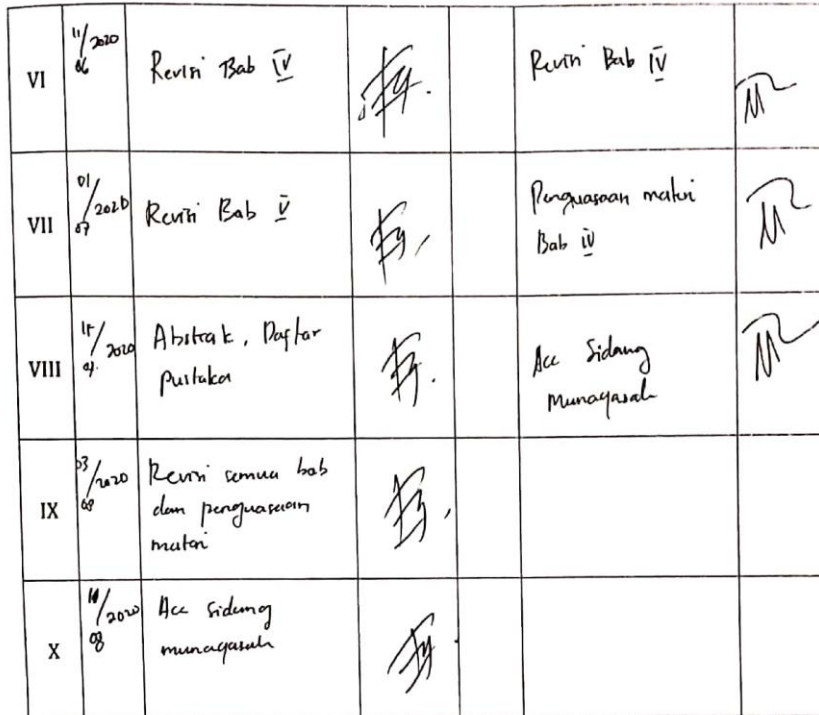 VI
11/2020
06
Revisi Bab IV
Revisi Bab IV
VII
01/2020
07
Revisi Bab V
Penguasaan materi
Bab IV
VIII
/2020
Abstrak, Daftar
Pustaka
Acc Sidang
munaqasah
IX
03/2020
08
Revisi semua bab
dan penguasaan
materi
X
10/2020
08
Acc Sidang
munaqasah